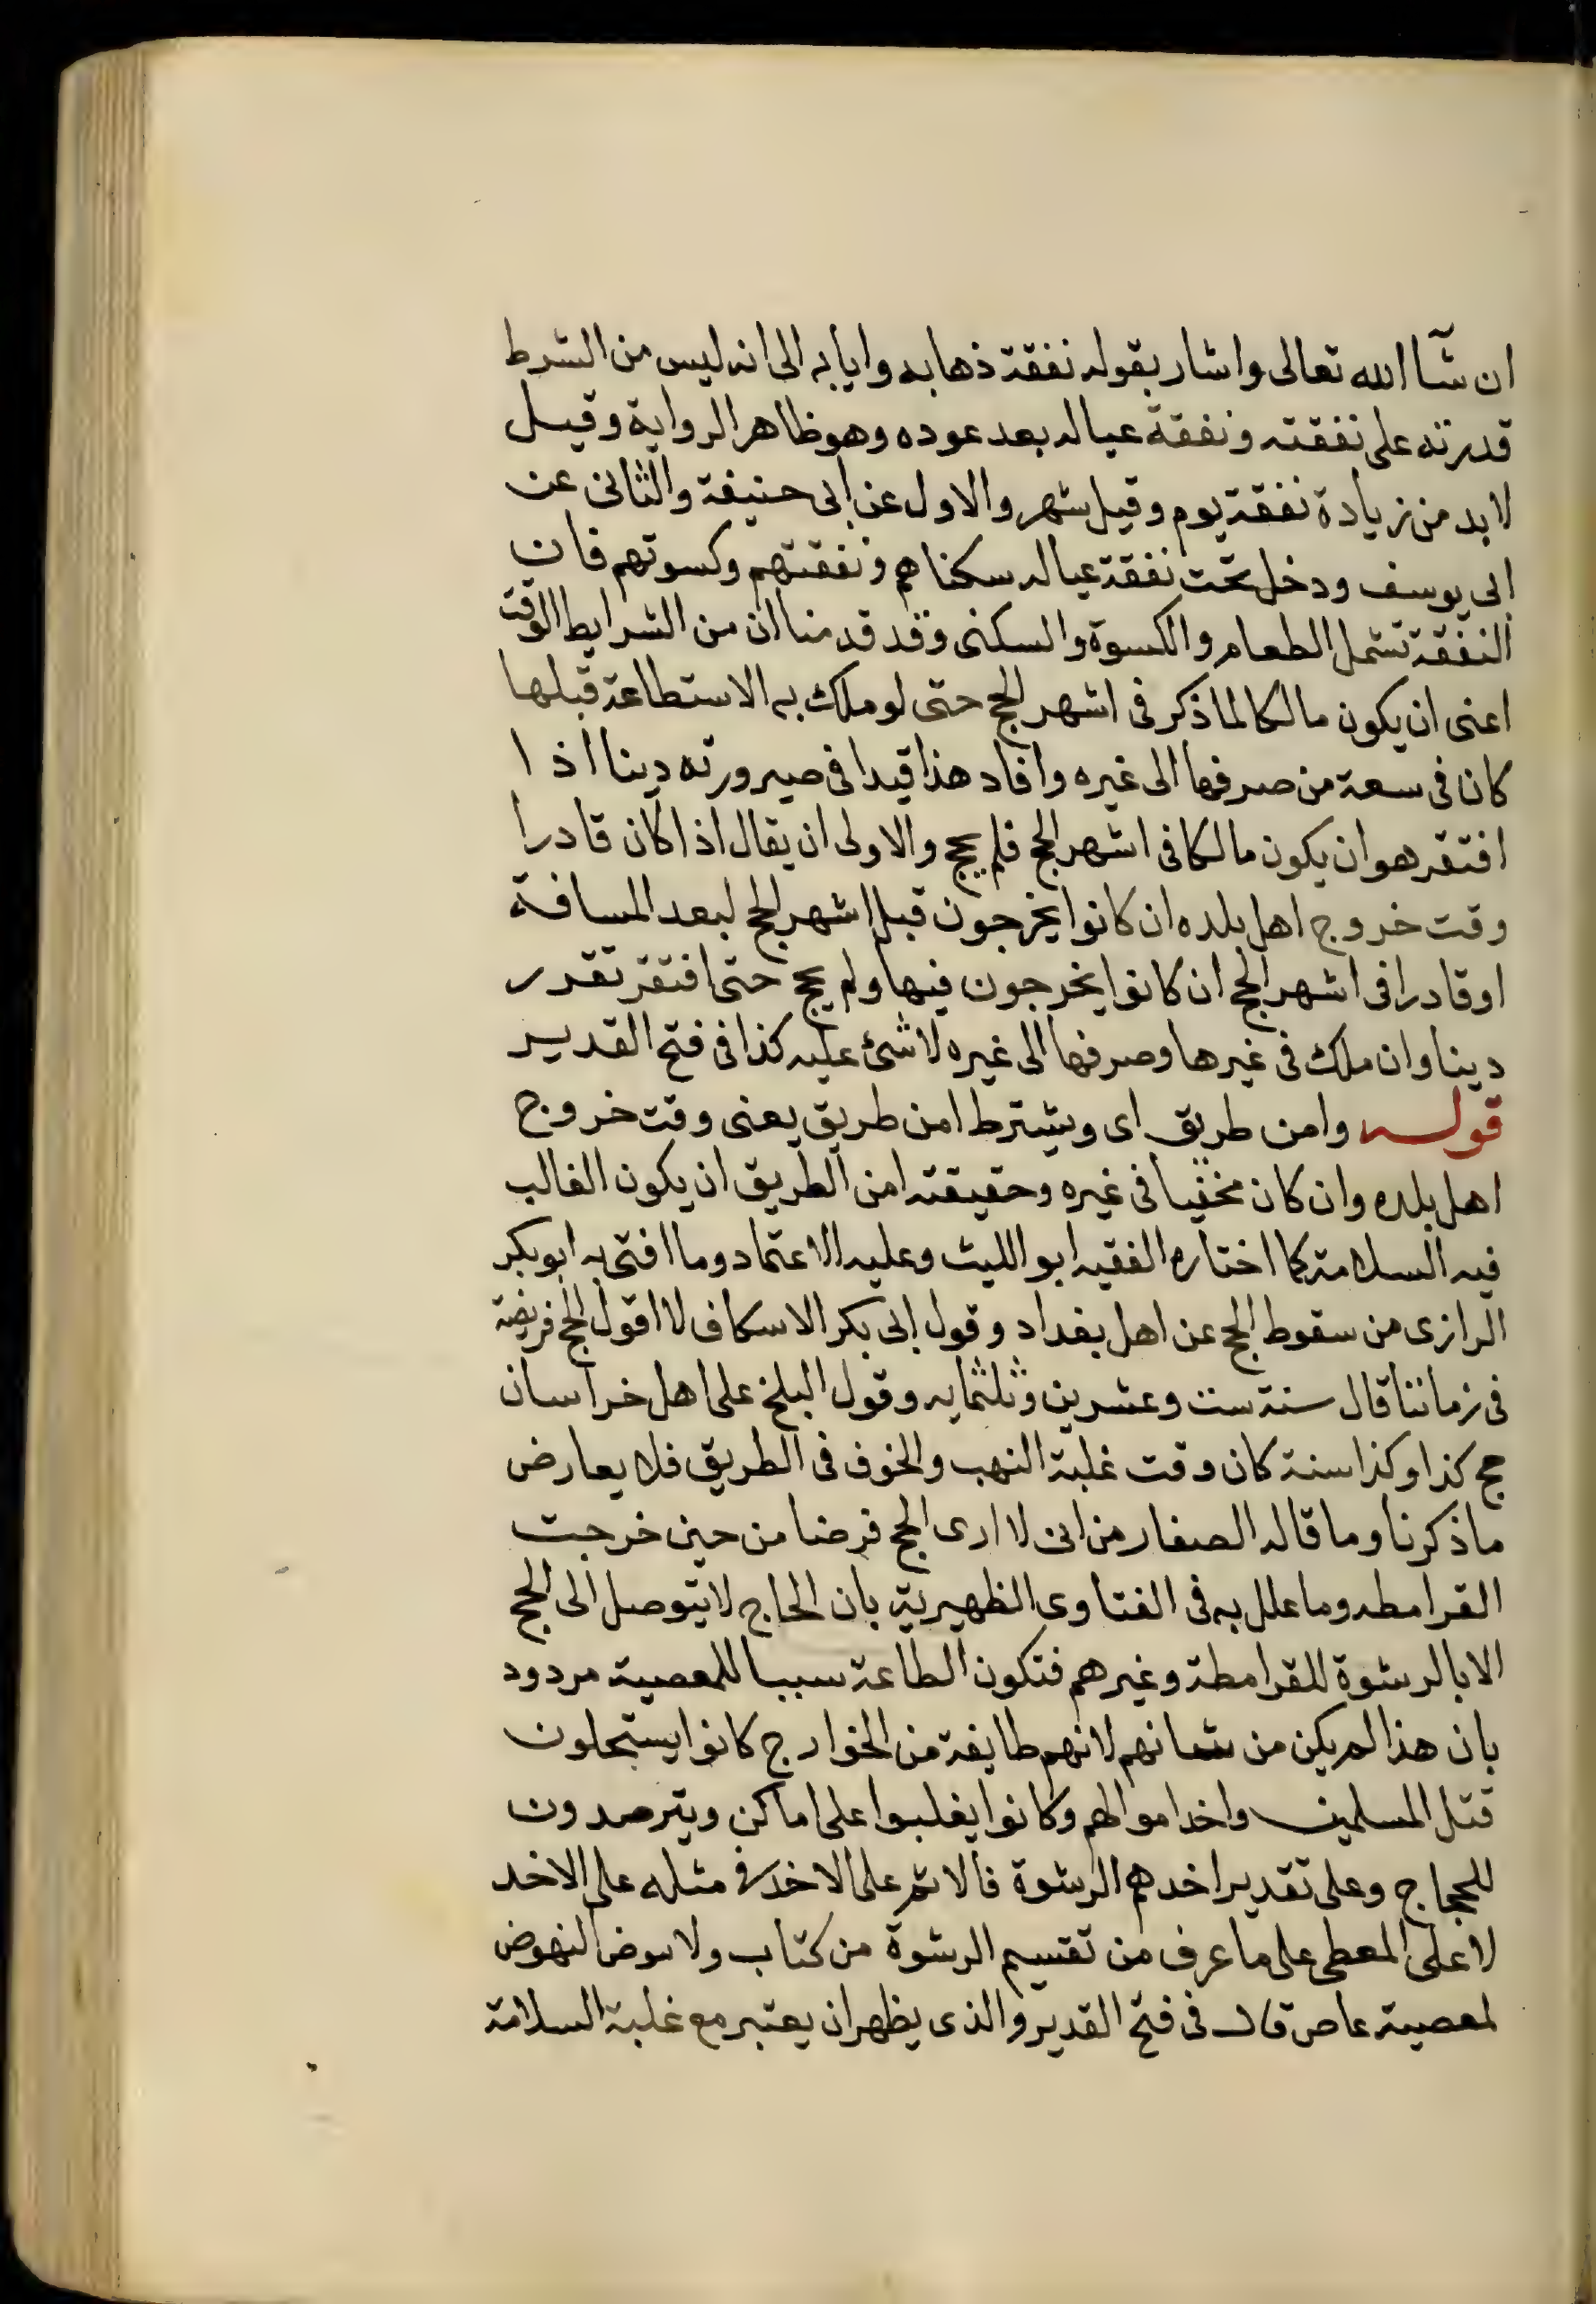 ان شآ الله تعالى واشار بقوله نفقة ذهابه وايابه الى انه ليس من الشرط
قدرته على نفقته ونفقة عياله بعد عوده وهو ظاهر الرواية وقيل
لا بد من زيادة نفقة يوم وقيل شهر والاول عن ابى حنيفة والثانى عن
ابى يوسف ودخل تحت نفقة عياله سكناهم ونفقتهم وكسوتهم فان
النفقة تشمل الطعام والكسوة والسكنى وقد قدمنا ان من الشرايط الوقت
اعنى ان يكون مالكا لما ذكر فى اشهر الحج حتى لو ملك به الاستطاعة قبلها
كان فى سعة من صرفها الى غيره وافاد هذا قيدا فى صيرورته دينا اذا
افتقر هو ان يكون مالكا فى اشهر الحج فلم يحج والاولى ان يقال اذا كان قادرا
وقت خروج اهل بلده ان كانوا يخرجون قبل اشهر الحج لبعد المسافة
او قادرا فى اشهر الحج ان كانوا يخرجون فيها ولم يحج حتى افتقر تقدر
دينا وان ملك فى غيرها وصرفها الى غيره لا شئ عليه كذا فى فتح القدير
قوله وامن طريق اى ويشترط امن طريق يعنى وقت خروج
اهل بلده وان كان مخيفا فى غيره وحقيقته امن الطريق ان يكون الغالب
فيه السلامة كما اختاره الفقيه ابو الليث وعليه الاعتماد وما افتى به ابو بكر
الرازى من سقوط الحج عن اهل بغداد وقول ابى بكر الاسكاف لا اقول الحج فريضة
فى زماننا قال سنة ست وعشرين وثلثمايه وقول البلخ على اهل خراسان
حج كذا وكذا سنة كان وقت غلبة النهب والخوف فى الطريق فلا يعارض
ما ذكرنا وما قاله الصفار من انى لا ارى الحج فرضا من حين خرجت
القرامطه وما علل به فى الفتاوى الظهيرية بان الحاج لا يتوصل الى الحج
الا بالرشوة للقرامطة وغيرهم فتكون الطاعة سببا للمعصية مردود
بان هذا لم يكن من شانهم لانهم طايفة من الخوارج كانوا يستحلون
قتل المسلمين واخد اموالهم وكانوا يغلبوا على اماكن ويترصدون
للحجاج وعلى تقدير اخدهم الرشوة فالاثم على الاخد فى مثله على الاخد
لا على المعطى على ما عرف من تقسيم الرشوة من كتاب ولا النهوض
لمعصية عاص قال فى فتح القدير والذى يظهر ان يعتبر مع غلبة السلامة